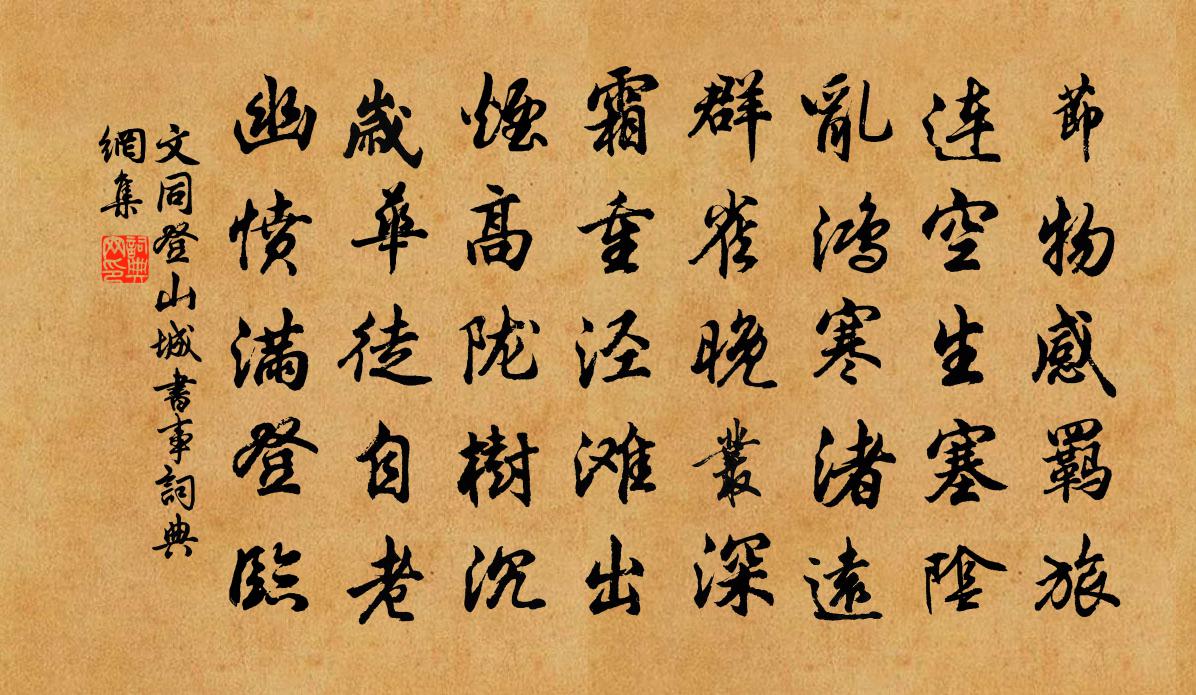 節物感羁旅
連空生塞陰
亂鴻寒渚遠
群雀晚叢深
霜重泾滩出
煙高陇樹沉
歲華徒自老
幽憤滿登臨
文同登山城書事詞典
網集
詞典網印